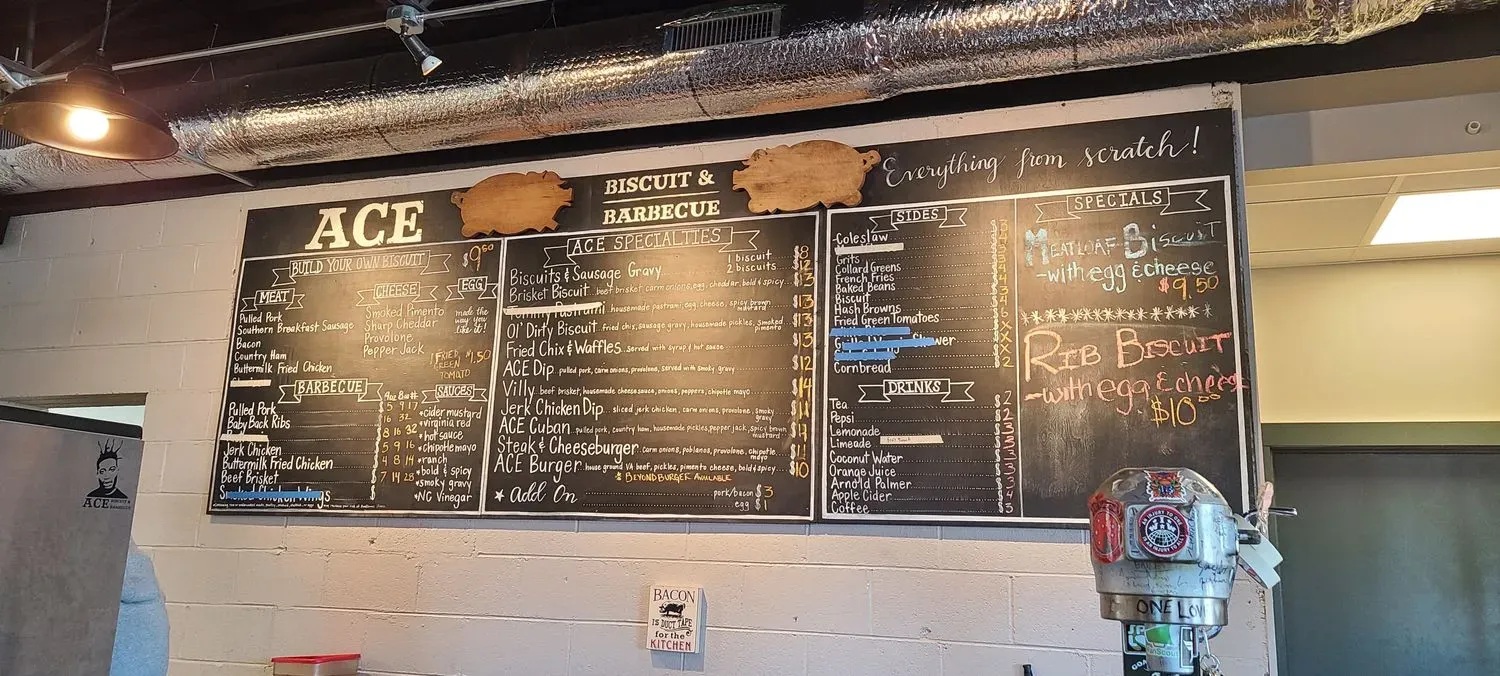 ACE
BISCUIT &
BARBECUE
Everything from scratch!
BUILD YOUR OWN BISCUIT $9.50
MEAT
Pulled Pork
Southern Breakfast Sausage
Bacon
Country Ham
Buttermilk Fried Chicken
CHEESE
Smoked Pimento
Sharp Cheddar
Provolone
Pepper Jack
EGG
made the
way you
like it!
FRIED
GREEN $1.50
TOMATO
BARBECUE
Pulled Pork 5 9 17
Baby Back Ribs 16 32
8 16 32
Jerk Chicken 5 9 16
Buttermilk Fried Chicken 4 8 14
Beef Brisket 7 14 28
Smoked Chicken Wings
SAUCES
*cider mustard
*virginia red
*hot sauce
*chipotle mayo
*ranch
*bold & spicy
*smoky gravy
*NC Vinegar
ACE SPECIALTIES
Biscuits & Sausage Gravy 1 biscuit 8
2 biscuits 12
Brisket Biscuit beef brisket, carm onions, egg, cheddar, bold & spicy 13
Pastrami housemade pastrami, egg, cheese, spicy brown mustard 13
Ol' Dirty Biscuit fried chix, sausage gravy, housemade pickles, smoked pimento $13
Fried Chix & Waffles served with syrup & hot sauce 13
ACE Dip pulled pork, carm onions, provolone, served with smoky gravy 12
Villy beef brisket, housemade cheese sauce, onions, peppers, chipotle mayo 14
Jerk Chicken Dip sliced jerk chicken, carm onions, provolone, smoky gravy
ACE Cuban pulled pork, country ham, housemade pickles, pepper jack, spicy brown mustard 14
Steak & Cheeseburger carm onions, poblanos, provolone, chipotle mayo 11
ACE Burger house ground VA beef, pickles, pimento cheese, bold & spicy $10
* BEYOND BURGER AVAILABLE
★ Add On pork/bacon $3
egg $1
SIDES
Coleslaw
Grits
Collard Greens
French Fries
Baked Beans
Biscuit
Hash Browns
Fried Green Tomatoes
Cornbread 2
DRINKS
Tea $2
Pepsi 2
Lemonade
Limeade
Coconut Water
Orange Juice
Arnold Palmer
Apple Cider 4
Coffee $3
SPECIALS
MEATLOAF BISCUIT
-with egg & cheese
$9.50
RIB BISCUIT
-with egg & cheese
$10.00
ACE BISCUIT &
BARBECUE
BACON
IS DUCT TAPE
for the
KITCHEN
AN INJURY TO ONE
IS AN INJURY TO ALL
ONE LOVE